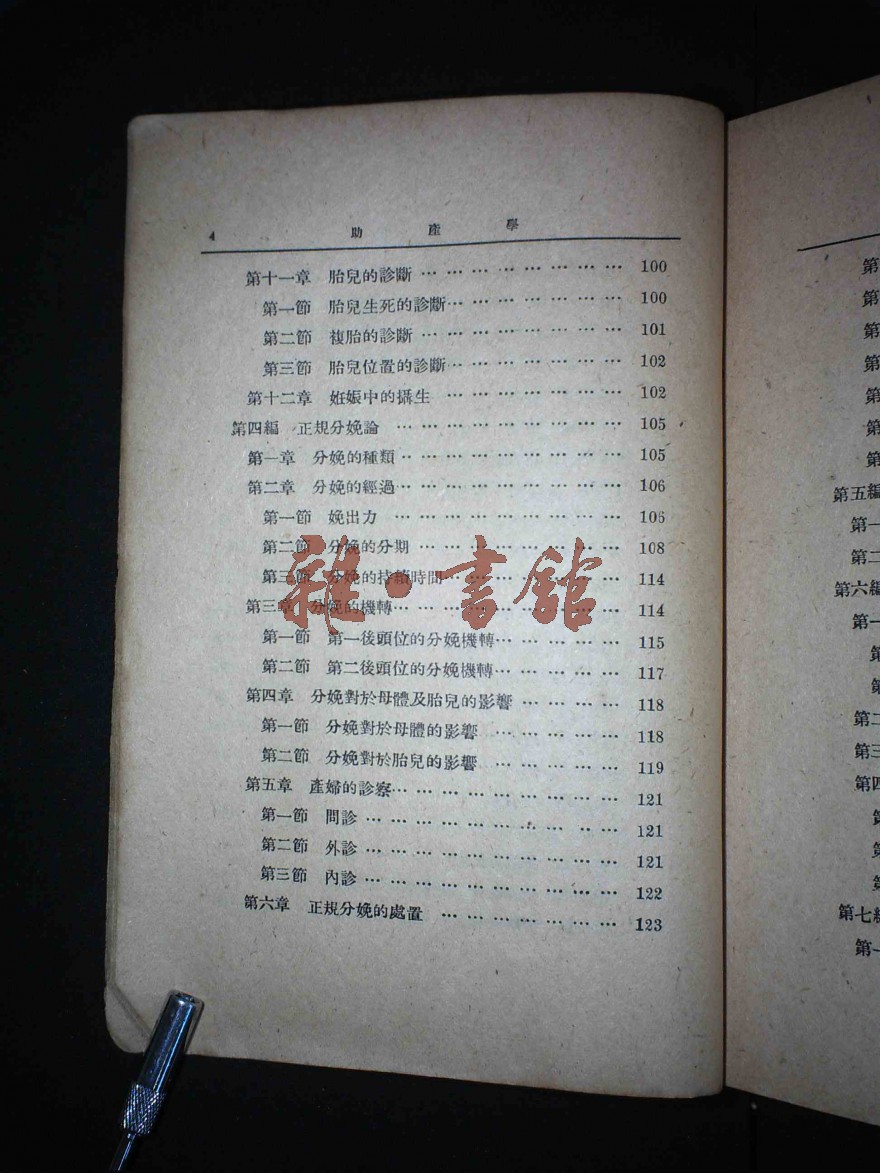 4 助產學
第十一章 胎兒的診斷 … … … … … … … … 100
第一節 胎兒生死的診斷… … … … … … … 100
第二節 複胎的診斷 … … … … … … … … 101
第三節 胎兒位置的診斷… … … … … … … 102
第十二章 姙娠中的攝生 … … … … … … … 102
第四編 正規分娩論 … … … … … … … … … 105
第一章 分娩的種類 … … … … … … … … … 105
第二章 分娩的經過… … … … … … … … … 106
第一節 娩出力 … … … … … … … … … 106
第二節 分娩的分期 … … … … … … … … 108
第三節 分娩的持續時間… … … … … … … 114
第三章 分娩的機轉… … … … … … … … … 114
第一節 第一後頭位的分娩機轉… … … … … 115
第二節 第二後頭位的分娩機轉… … … … … 117
第四章 分娩對於母體及胎兒的影響 … … … … 118
第一節 分娩對於母體的影響 … … … … … 118
第二節 分娩對於胎兒的影響 … … … … … 119
第五章 產婦的診察… … … … … … … … … 121
第一節 問診 … … … … … … … … … … 121
第二節 外診 … … … … … … … … … … 121
第三節 內診 … … … … … … … … … … 122
第六章 正規分娩的處置 … … … … … … … 123
雜·書館
第
第
第
第
第
第
第
第五編
第一
第二
第六編
第一
第
第
第二
第三
第四
第
第
第
第七編
第一